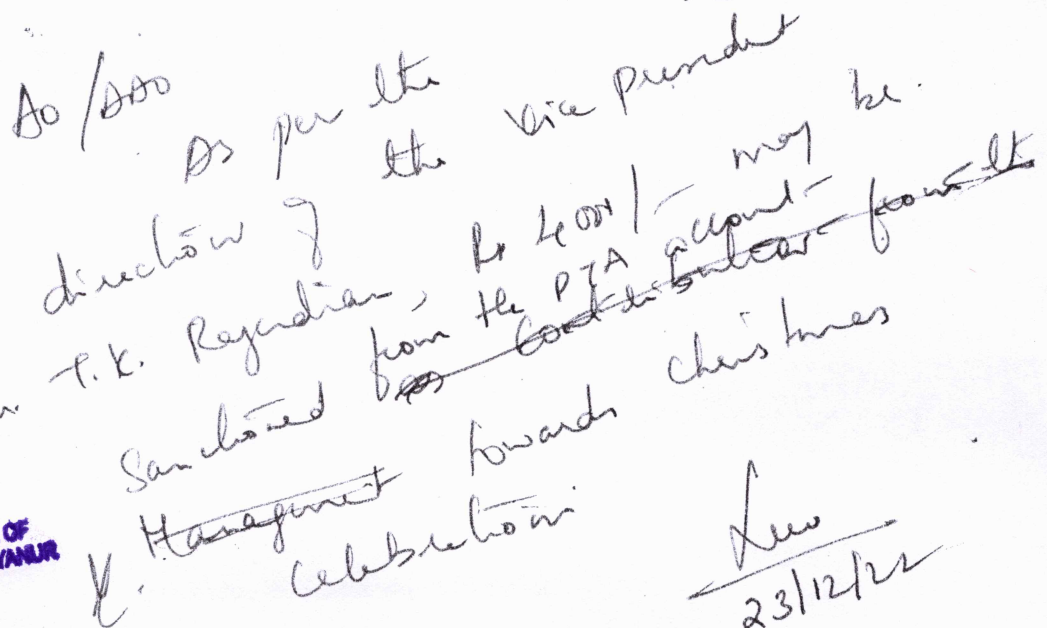 AO/AAO
As per the
direction of the Vice President
T.K. Rajendran, Rs 4000/- may be
Sanctioned from the PTA account
as contribution from the
Management towards Christmas
Celebration
23/12/22
OF
YANUR